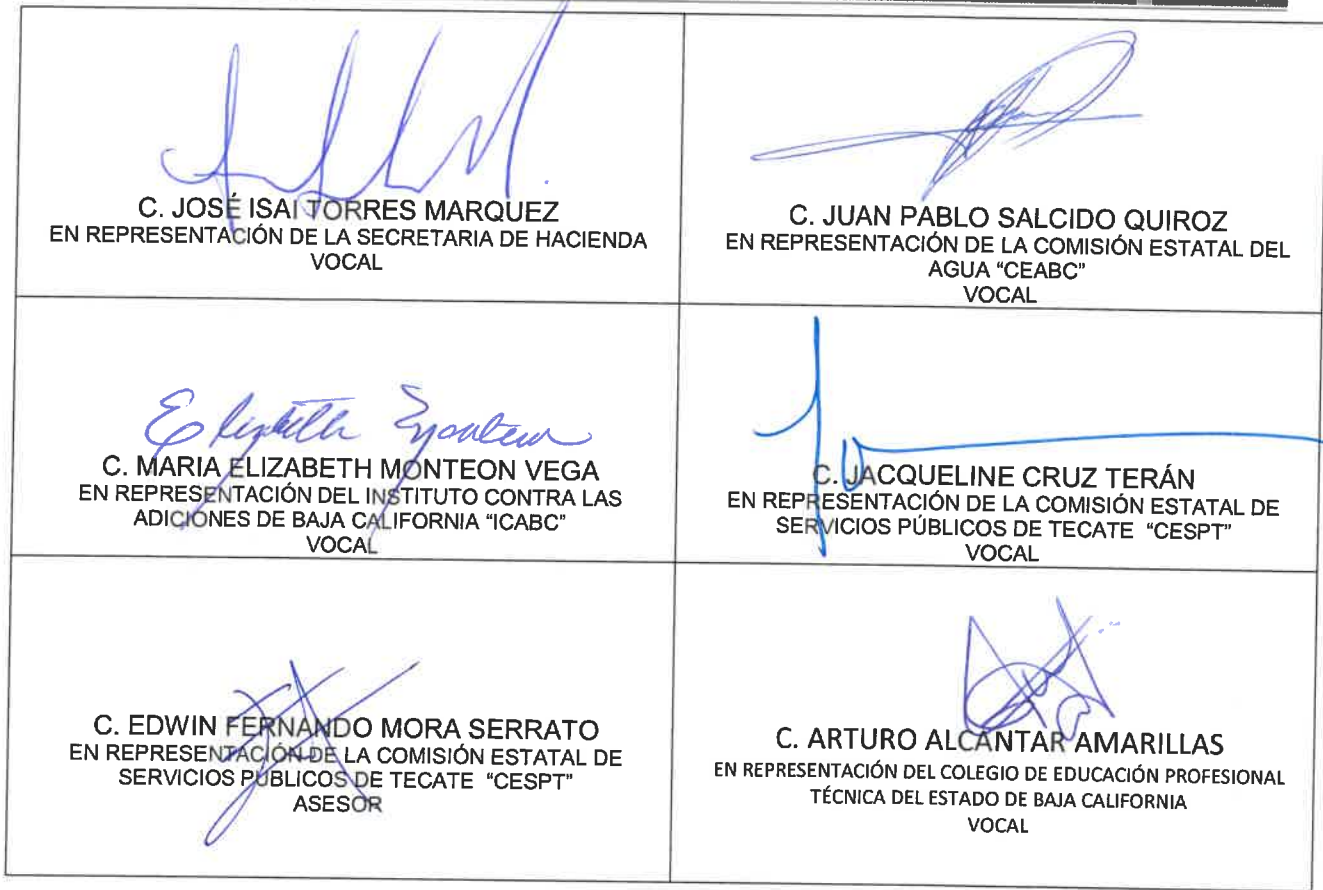 C. JOSÉ ISAI TORRES MARQUEZ
EN REPRESENTACIÓN DE LA SECRETARIA DE HACIENDA
VOCAL
C. JUAN PABLO SALCIDO QUIROZ
EN REPRESENTACIÓN DE LA COMISIÓN ESTATAL DEL
AGUA “CEABC”
VOCAL
Elizabeth Monteon
C. MARIA ELIZABETH MONTEON VEGA
EN REPRESENTACIÓN DEL INSTITUTO CONTRA LAS
ADICIONES DE BAJA CALIFORNIA “ICABC”
VOCAL
C. JACQUELINE CRUZ TERÁN
EN REPRESENTACIÓN DE LA COMISIÓN ESTATAL DE
SERVICIOS PÚBLICOS DE TECATE “CESPT”
VOCAL
C. EDWIN FERNANDO MORA SERRATO
EN REPRESENTACIÓN DE LA COMISIÓN ESTATAL DE
SERVICIOS PÚBLICOS DE TECATE “CESPT”
ASESOR
C. ARTURO ALCANTAR AMARILLAS
EN REPRESENTACIÓN DEL COLEGIO DE EDUCACIÓN PROFESIONAL
TÉCNICA DEL ESTADO DE BAJA CALIFORNIA
VOCAL